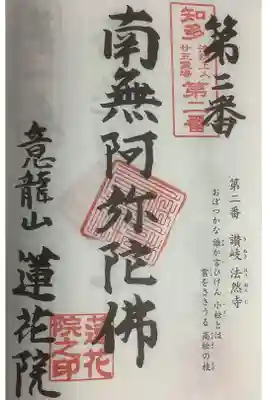 第二番
知多
法然上人
廿五霊場
第二番
第二番 讃岐 法然寺
おぼつかな 誰か言ひけん 小松とは
雲をささうる 高松の枝
南無阿弥陀佛
意龍山 蓮花院
蓮花
院之印